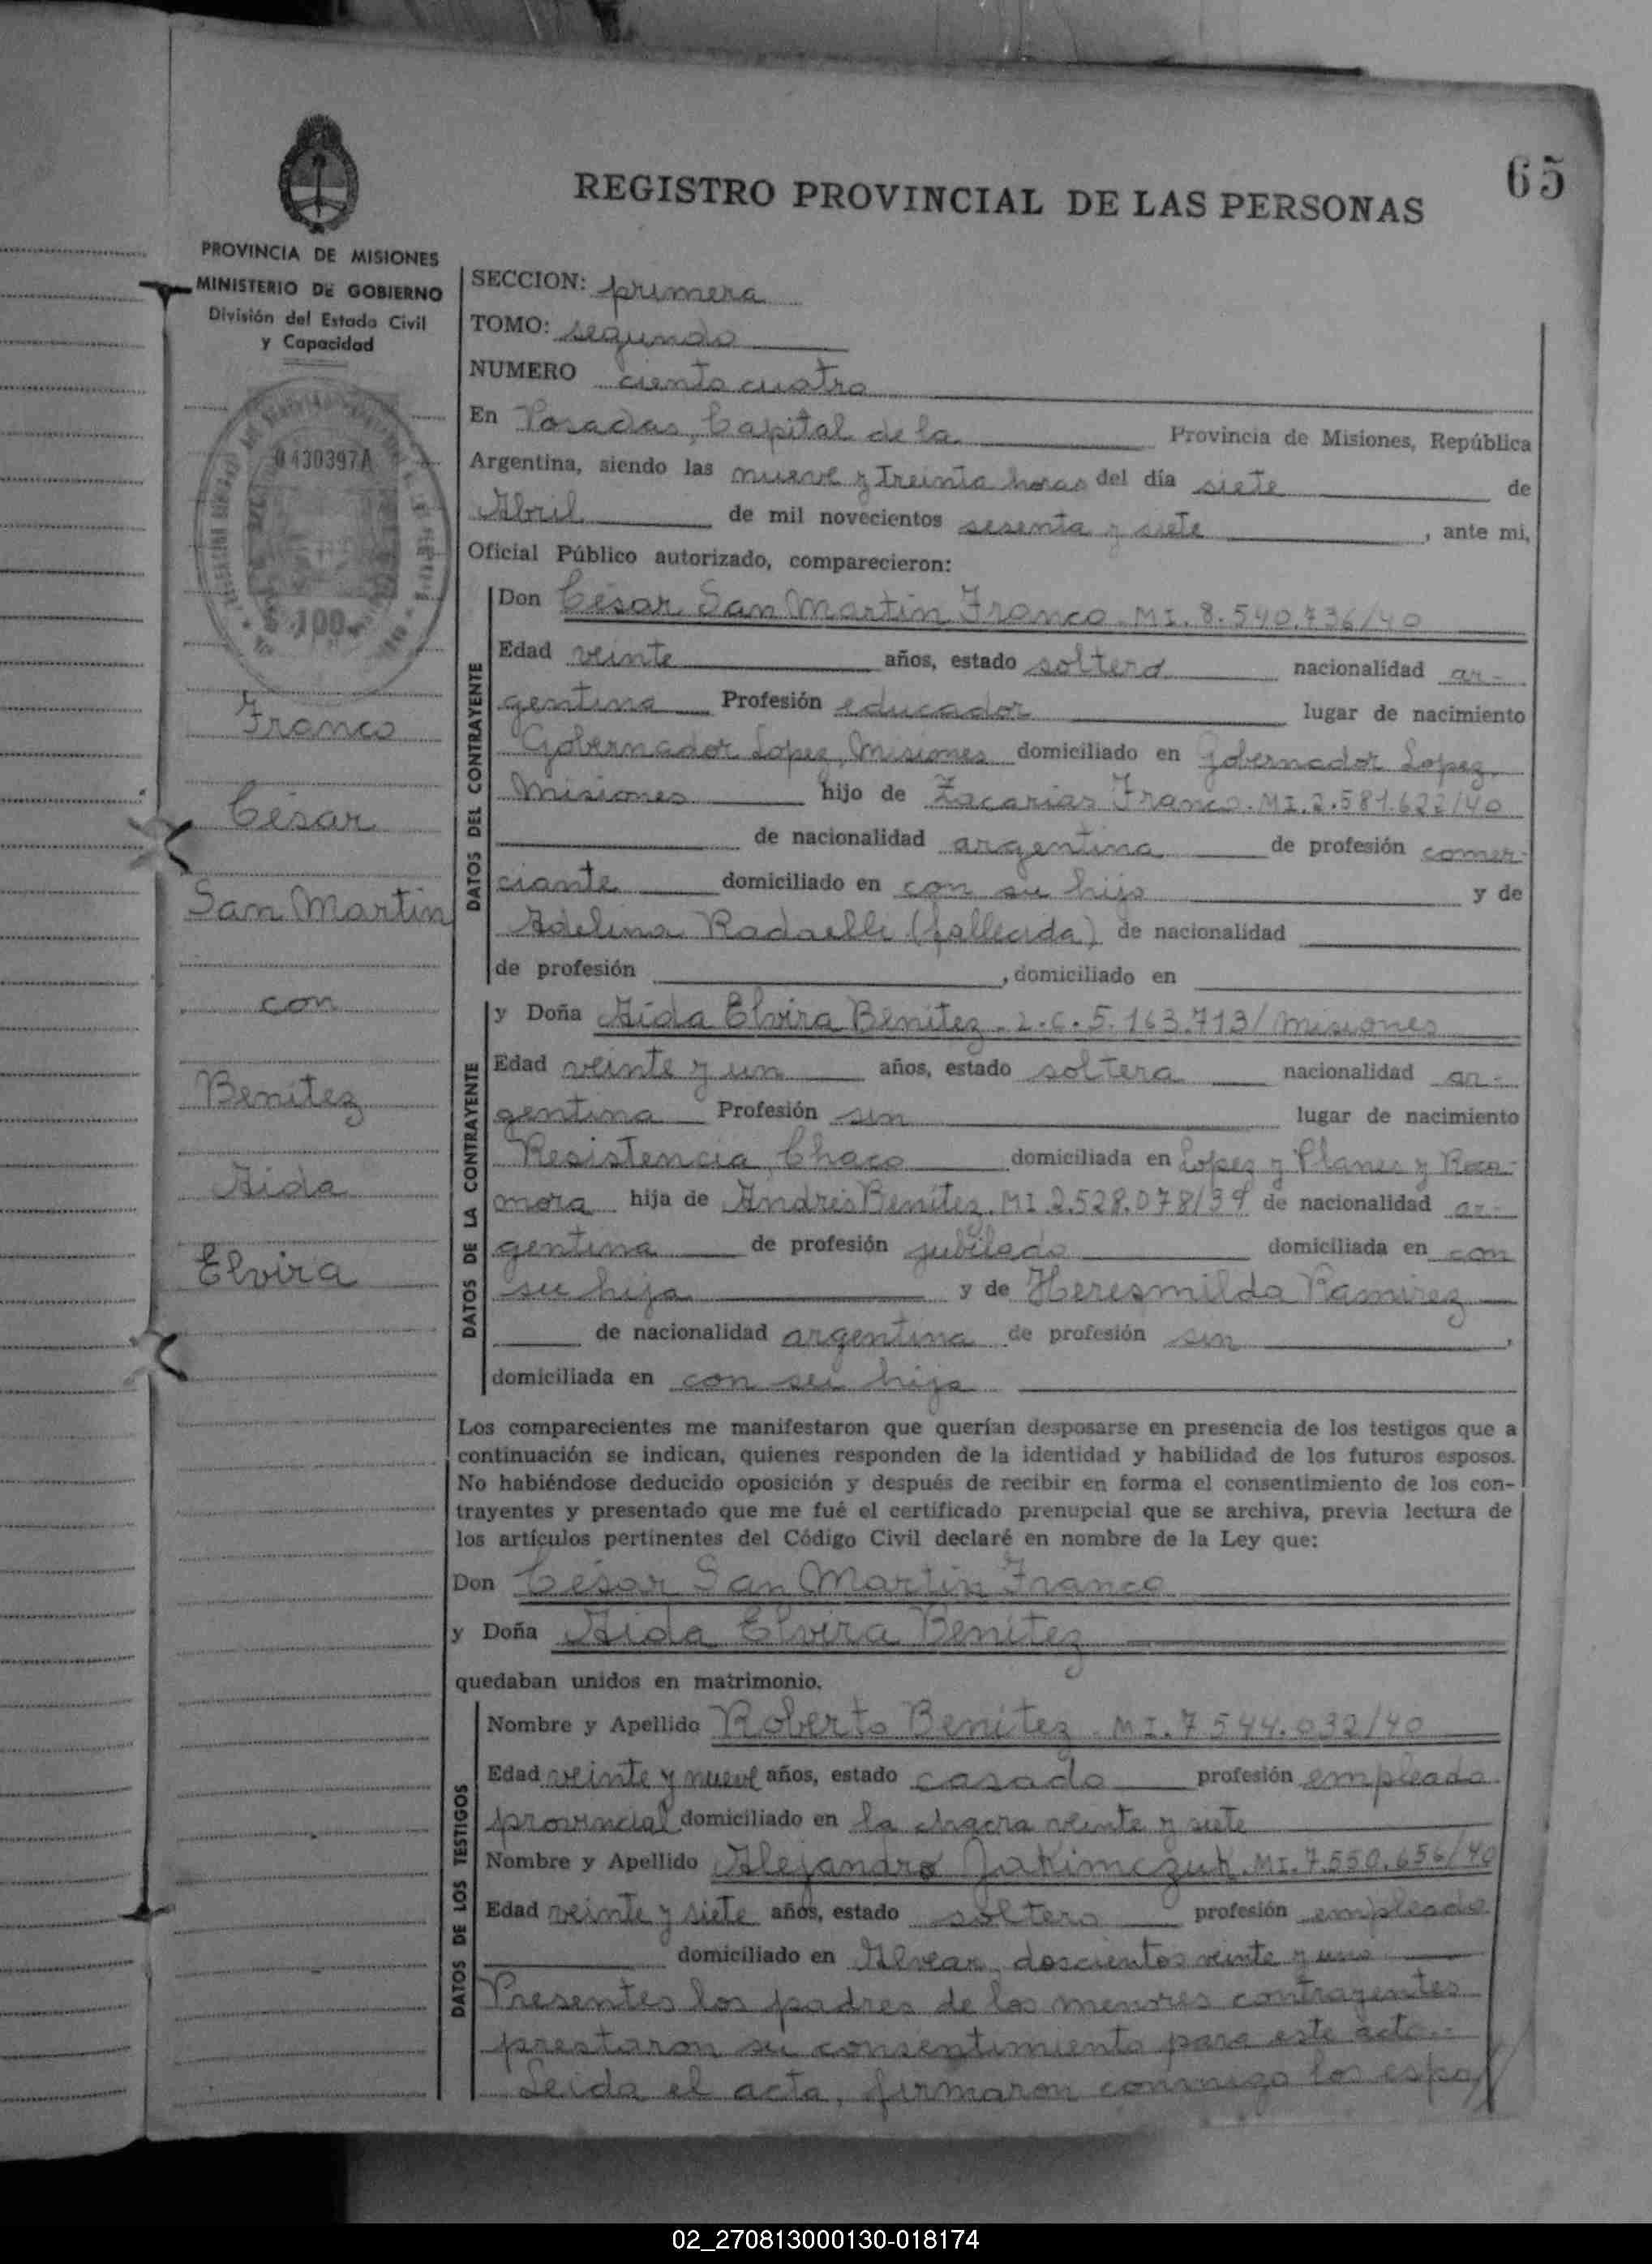 65
REGISTRO PROVINCIAL DE LAS PERSONAS
PROVINCIA DE MISIONES
MINISTERIO DE GOBIERNO
División del Estado Civil
y Capacidad
0430397A
$ 100
Franco
César
San Martin
con
Benítez
Aida
Elvira
SECCION: primera
TOMO: segundo
NUMERO ciento cuatro
En Posadas, Capital de la Provincia de Misiones, República
Argentina, siendo las nueve y treinta horas del día siete de
Abril de mil novecientos sesenta y siete, ante mi,
Oficial Público autorizado, comparecieron:
DATOS DEL CONTRAYENTE
Don César San Martin Franco. MI. 8.540.736/40
Edad veinte años, estado soltero nacionalidad ar-
gentina Profesión educador lugar de nacimiento
Gobernador Lopez, Misiones domiciliado en Gobernador Lopez,
Misiones hijo de Zacarias Franco. MI. 2.581.622/40
de nacionalidad argentina de profesión comer-
ciante domiciliado en con su hijo y de
Adelina (fallecida) de nacionalidad
de profesión , domiciliado en
DATOS DE LA CONTRAYENTE
y Doña Aida Elvira Benítez. L.C. 5.163.713/Misiones
Edad veinte y un años, estado soltera nacionalidad ar-
gentina Profesión sin lugar de nacimiento
Resistencia, Chaco domiciliada en Lopez y Planes y Roca-
mora hija de Andrés Benítez. MI 2.528.078/39 de nacionalidad ar-
gentina de profesión jubilado domiciliada en con
su hija y de Heresmilda Ramirez
de nacionalidad argentina de profesión sin ,
domiciliada en con su hija
Los comparecientes me manifestaron que querían desposarse en presencia de los testigos que a
continuación se indican, quienes responden de la identidad y habilidad de los futuros esposos.
No habiéndose deducido oposición y después de recibir en forma el consentimiento de los con-
trayentes y presentado que me fué el certificado prenupcial que se archiva, previa lectura de
los artículos pertinentes del Código Civil declaré en nombre de la Ley que:
Don César San Martin Franco
y Doña Aida Elvira Benítez
quedaban unidos en matrimonio.
DATOS DE LOS TESTIGOS
Nombre y Apellido Roberto Benítez. MI. 7.544.032/40
Edad veinte y nueve años, estado casado profesión empleado
provincial domiciliado en la chacra veinte y siete
Nombre y Apellido Alejandro Jakimczuk. MI. 7.550.656/40
Edad veinte y siete años, estado soltero profesión empleado
domiciliado en Alvear, doscientos veinte y uno
Presentes los padres de los menores contrayentes
prestaron su consentimiento para este acto.-
Leida el acta, firmaron conmigo los espo
02_270813000130-018174